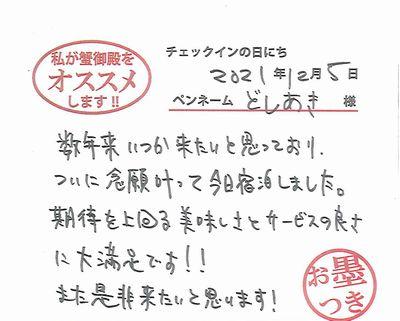 私が蟹御殿を
オススメ
します!!
チェックインの日にち
2021年12月5日
ペンネーム としあき 様
数年来いつか来たいと思っており、
ついに念願叶って今日宿泊しました。
期待を上回る美味しさとサービスの良さ
に大満足です!!
また是非来たいと思います!
お墨
つき